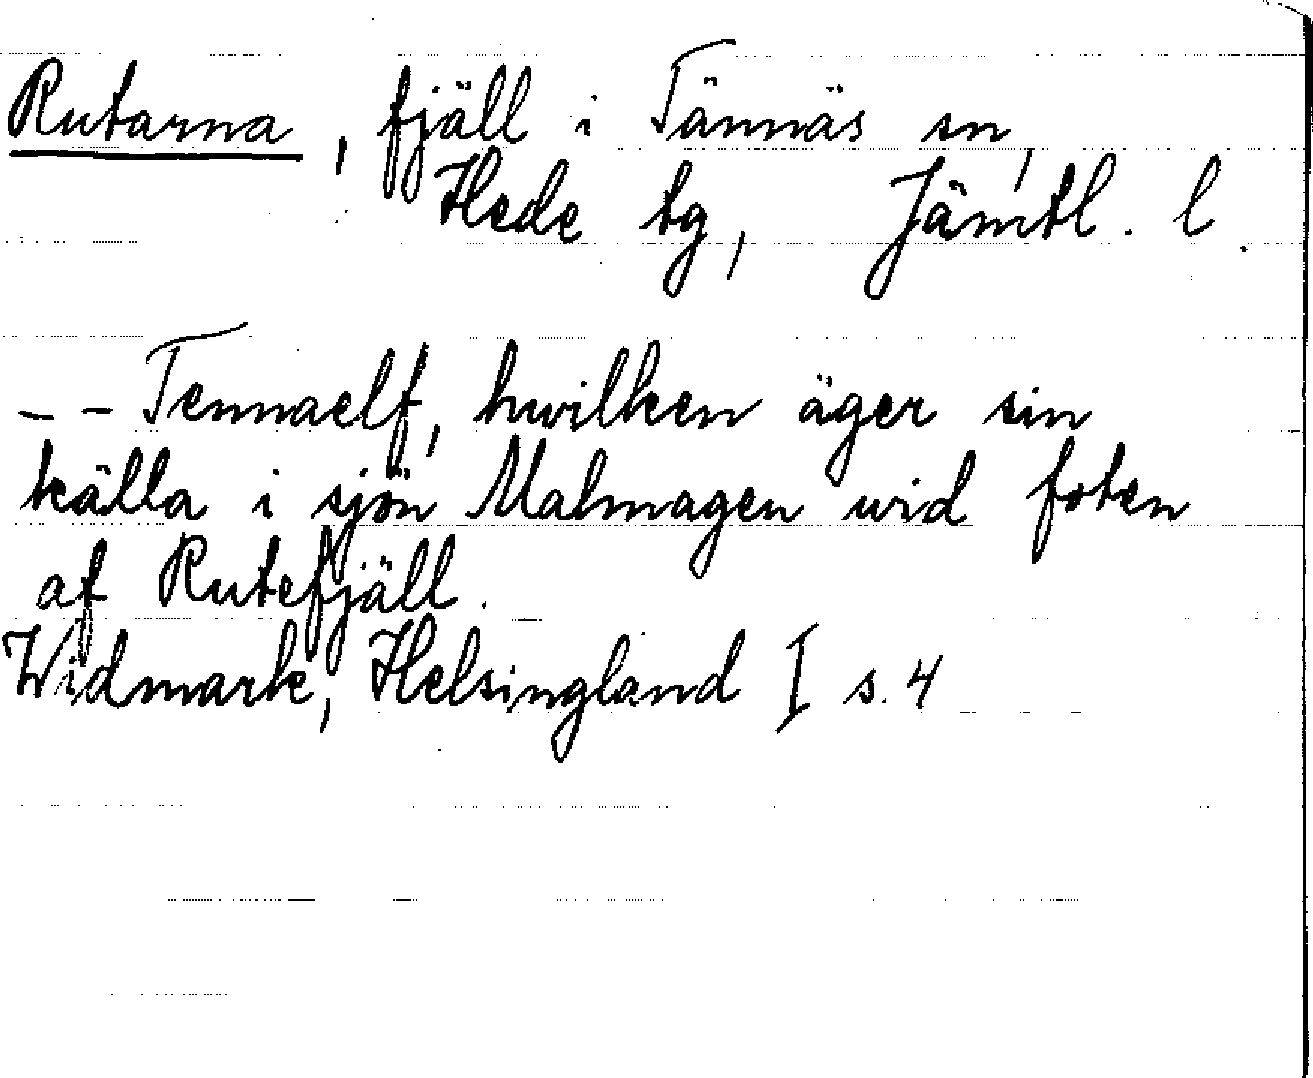 Rutarna, fjäll i Tännäs sn,
Hede tg, Jämtl. l.
-- Tennaelf, hwilken äger sin
källa i sjön Malmagen wid foten
af Rutefjäll.
Widmark, Helsingland I s. 4